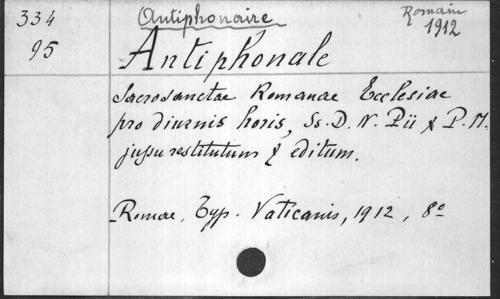 334
95
Antiphonaire
Romain
1912
Antiphonale
Sacrosanctae Romanae Ecclesiae
pro diurnis horis, Ss. D. N. Pii X P. M.
jussu restitutum & editum.
Romae, Typ. Vaticanis, 1912, 8º